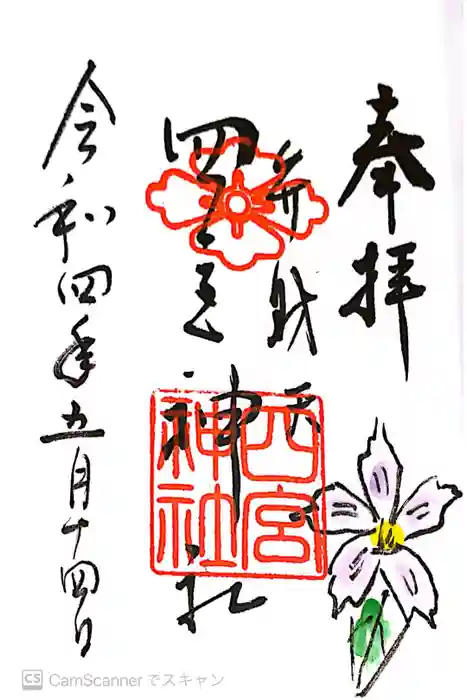 奉拝
弁財天
四宮神社
四宮
神社
令和四年五月十四日
CS CamScanner でスキャン